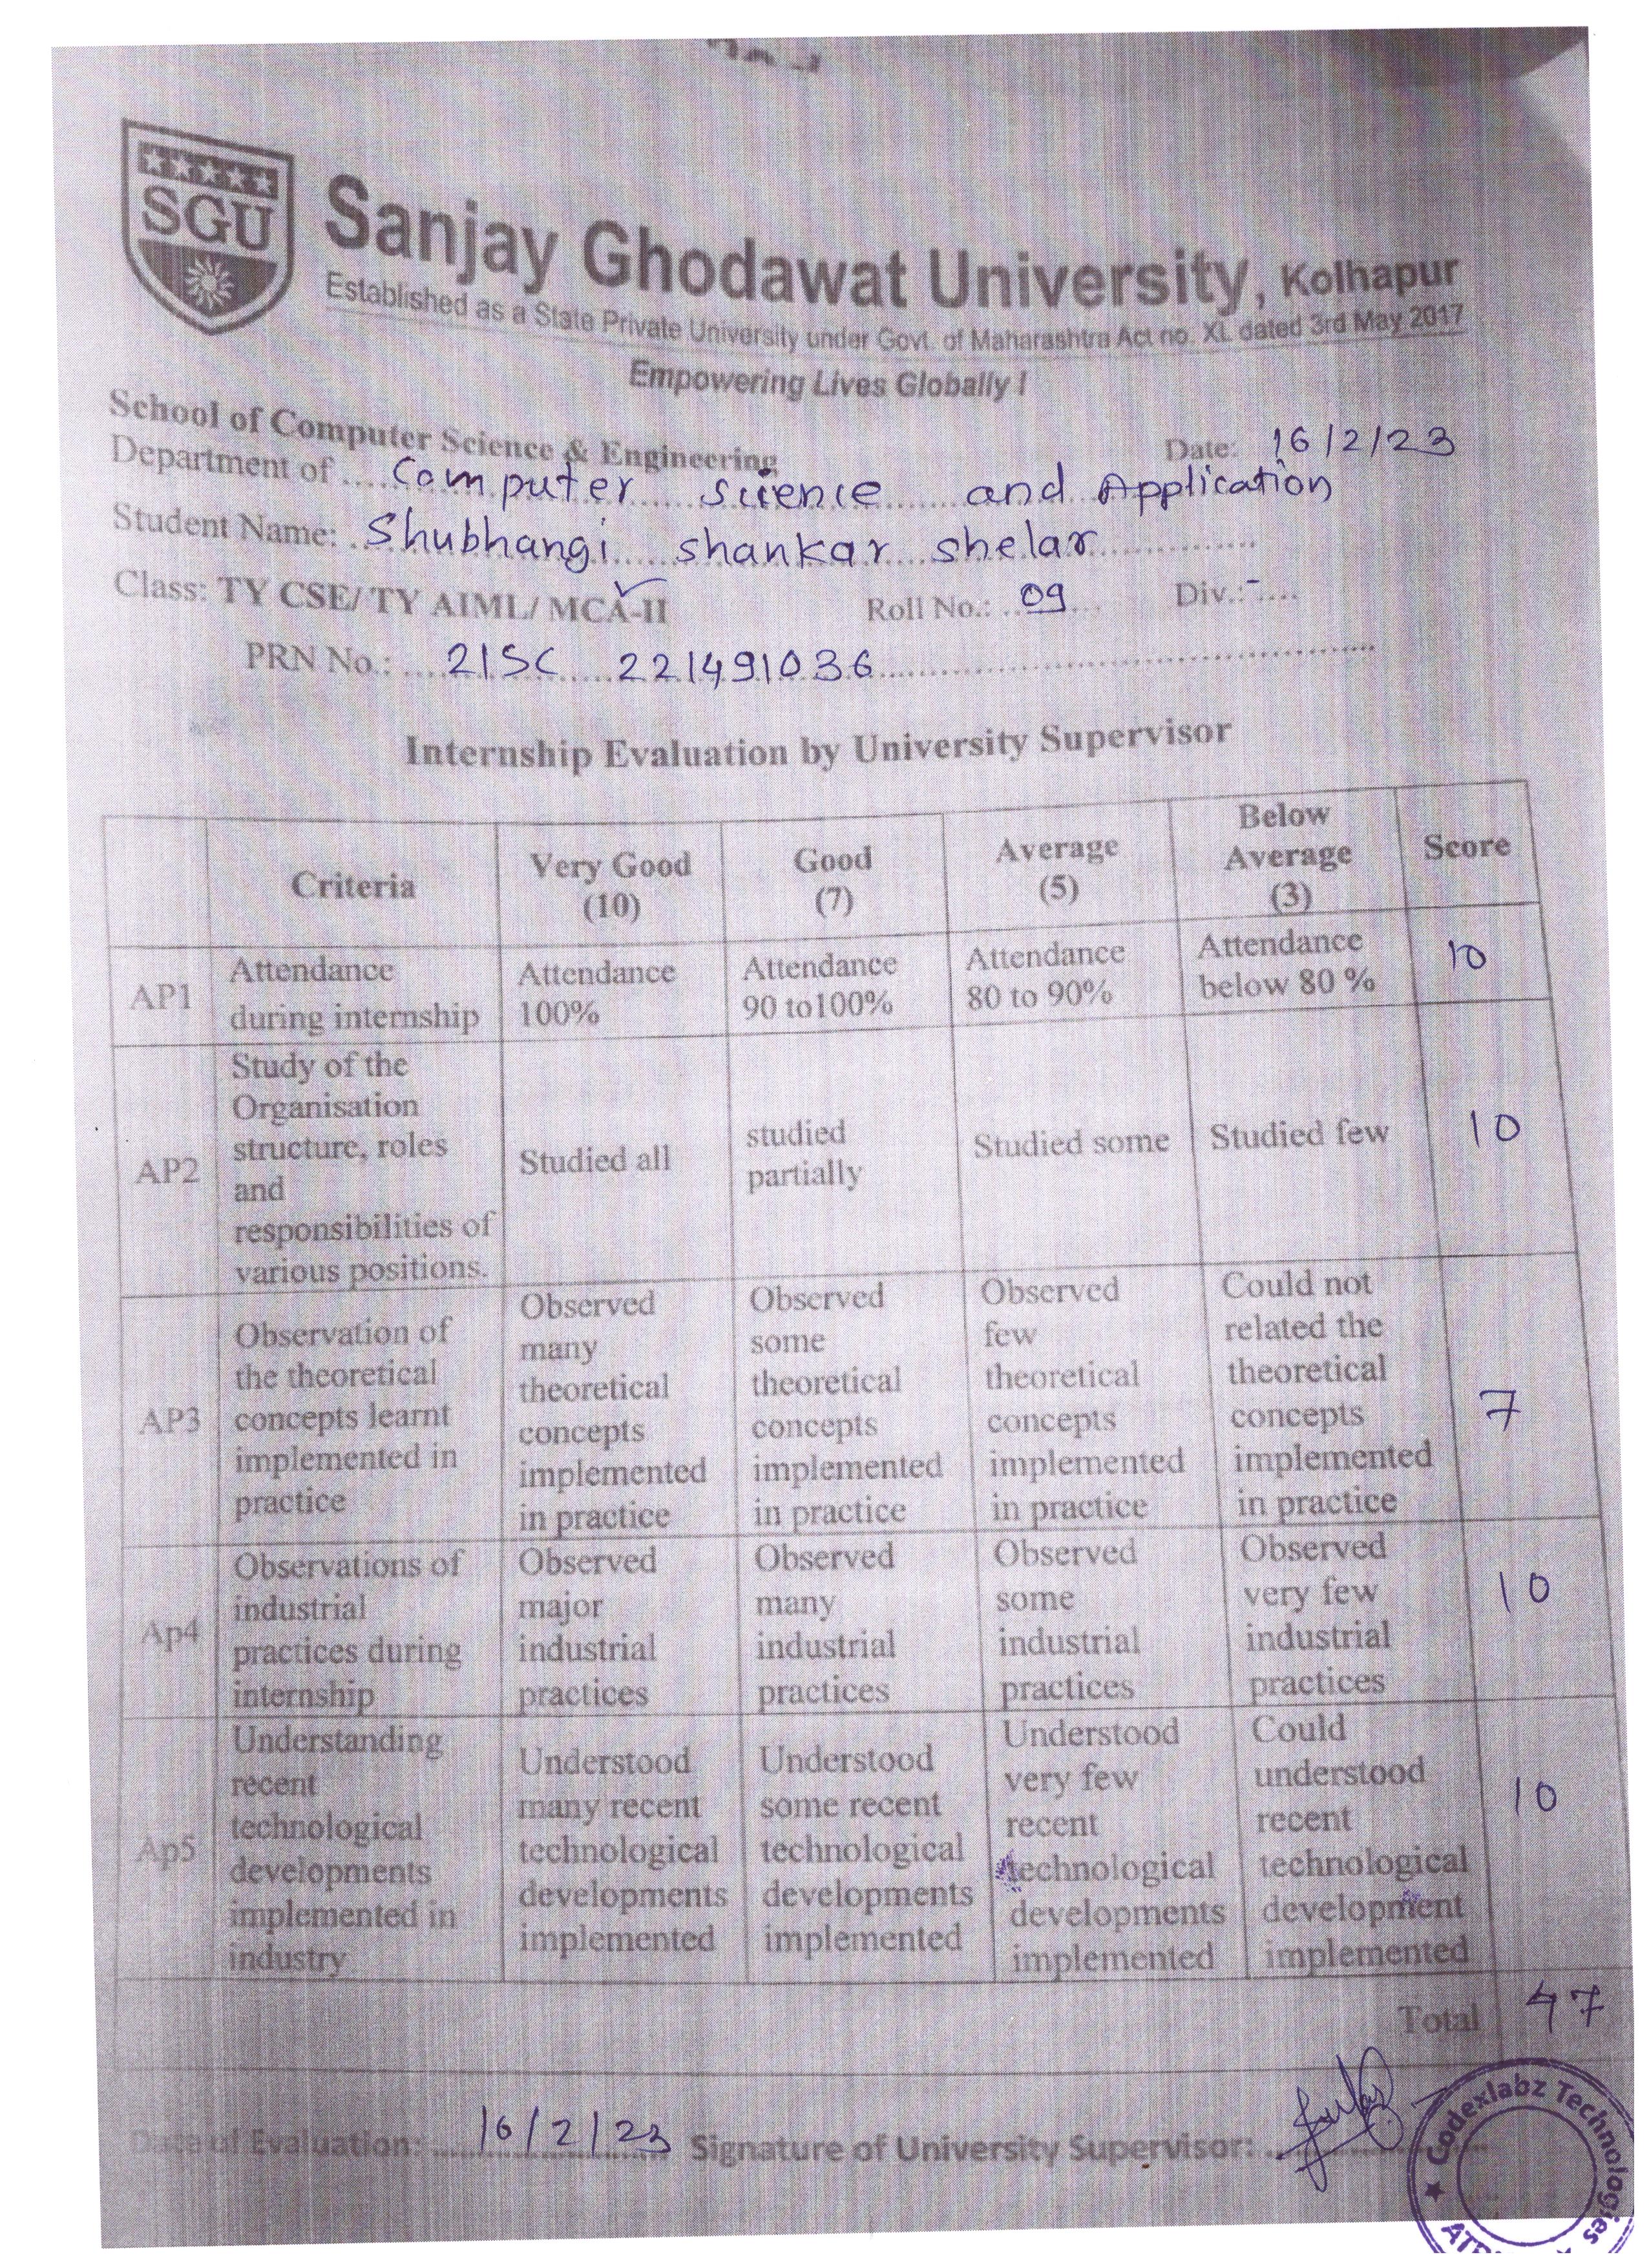 SGU
Sanjay Ghodawat University, Kolhapur
Established as a State Private University under Govt. of Maharashtra Act no. XL dated 3rd May 2017
Empowering Lives Globally !
School of Computer Science & Engineering
Date: 16/2/23
Department of .... Computer science and Application
Student Name: Shubhangi shankar shelar
Class: TY CSE/ TY AIML/ MCA-II ✓ Roll No.: 09 Div.: -
PRN No.: 21SC 221491036
Internship Evaluation by University Supervisor
Criteria
Very Good
(10)
Good
(7)
Average
(5)
Below
Average
(3)
Score
AP1
Attendance
during internship
Attendance
100%
Attendance
90 to100%
Attendance
80 to 90%
Attendance
below 80 %
10
AP2
Study of the
Organisation
structure, roles
and
responsibilities of
various positions.
Studied all
studied
partially
Studied some
Studied few
10
AP3
Observation of
the theoretical
concepts learnt
implemented in
practice
Observed
many
theoretical
concepts
implemented
in practice
Observed
some
theoretical
concepts
implemented
in practice
Observed
few
theoretical
concepts
implemented
in practice
Could not
related the
theoretical
concepts
implemented
in practice
7
Ap4
Observations of
industrial
practices during
internship
Observed
major
industrial
practices
Observed
many
industrial
practices
Observed
some
industrial
practices
Observed
very few
industrial
practices
10
Ap5
Understanding
recent
technological
developments
implemented in
industry
Understood
many recent
technological
developments
implemented
Understood
some recent
technological
developments
implemented
Understood
very few
recent
technological
developments
implemented
Could
understood
recent
technological
development
implemented
10
Total 47
Date of Evaluation: 16/2/23 Signature of University Supervisor:
Codexlabz Technologies